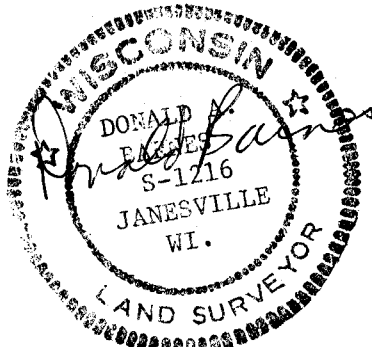 WISCONSIN
DONALD A.
BARNES
S-1216
JANESVILLE
WI.
LAND SURVEYOR
Donald Barnes